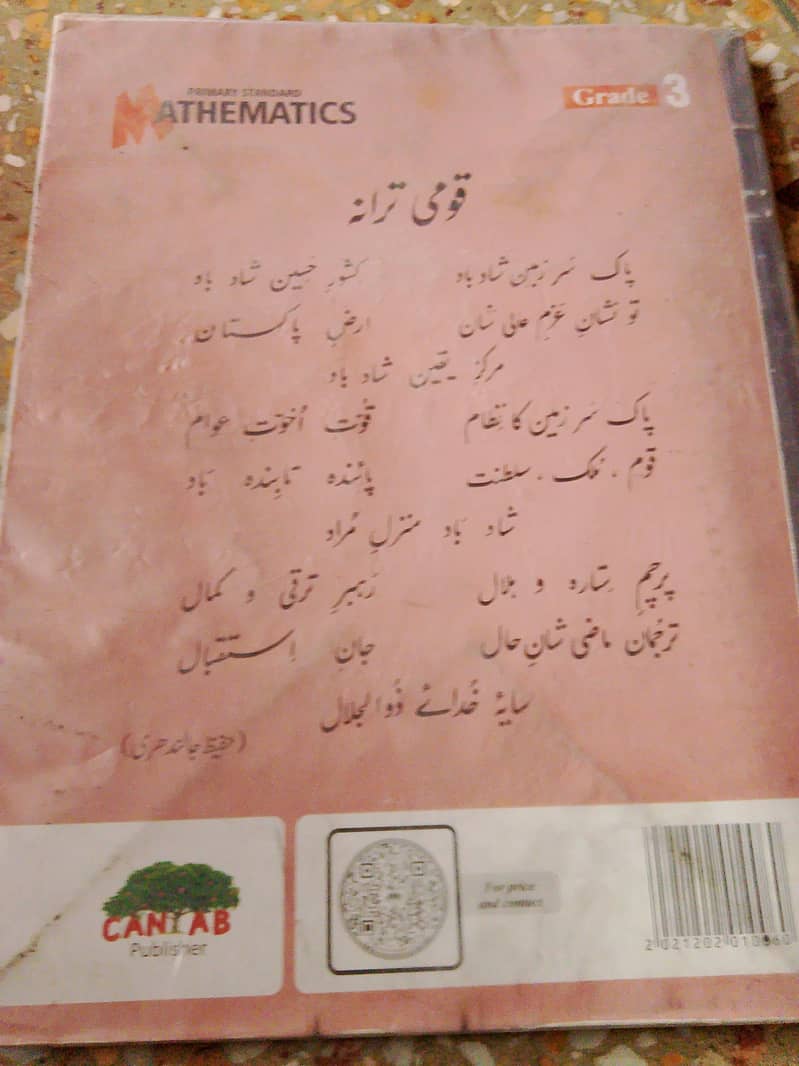 PRIMARY STANDARD
MATHEMATICS
Grade 3
قومی ترانہ
پاک سَر زمین شاد باد کشورِ حَسِین شاد باد
تو نشانِ عَزمِ عالی شان ارضِ پاکستان
مرکزِ یقین شاد باد
پاک سَر زمین کا نِظام قُوّتِ اُخوّتِ عوام
قوم ، مُلک ، سلطنت پائندہ تابِندہ بَاد
شاد بَاد منزلِ مُراد
پرچمِ سِتارہ و ہلال رَہبرِ ترقی و کمال
ترجُمان ماضی شانِ حال جانِ اِستقبال
سایۂ خُدائے ذُوالجلال
(حفیظ جالندھری)
CANTAB
Publisher
For price
and contact
2 021202 010060